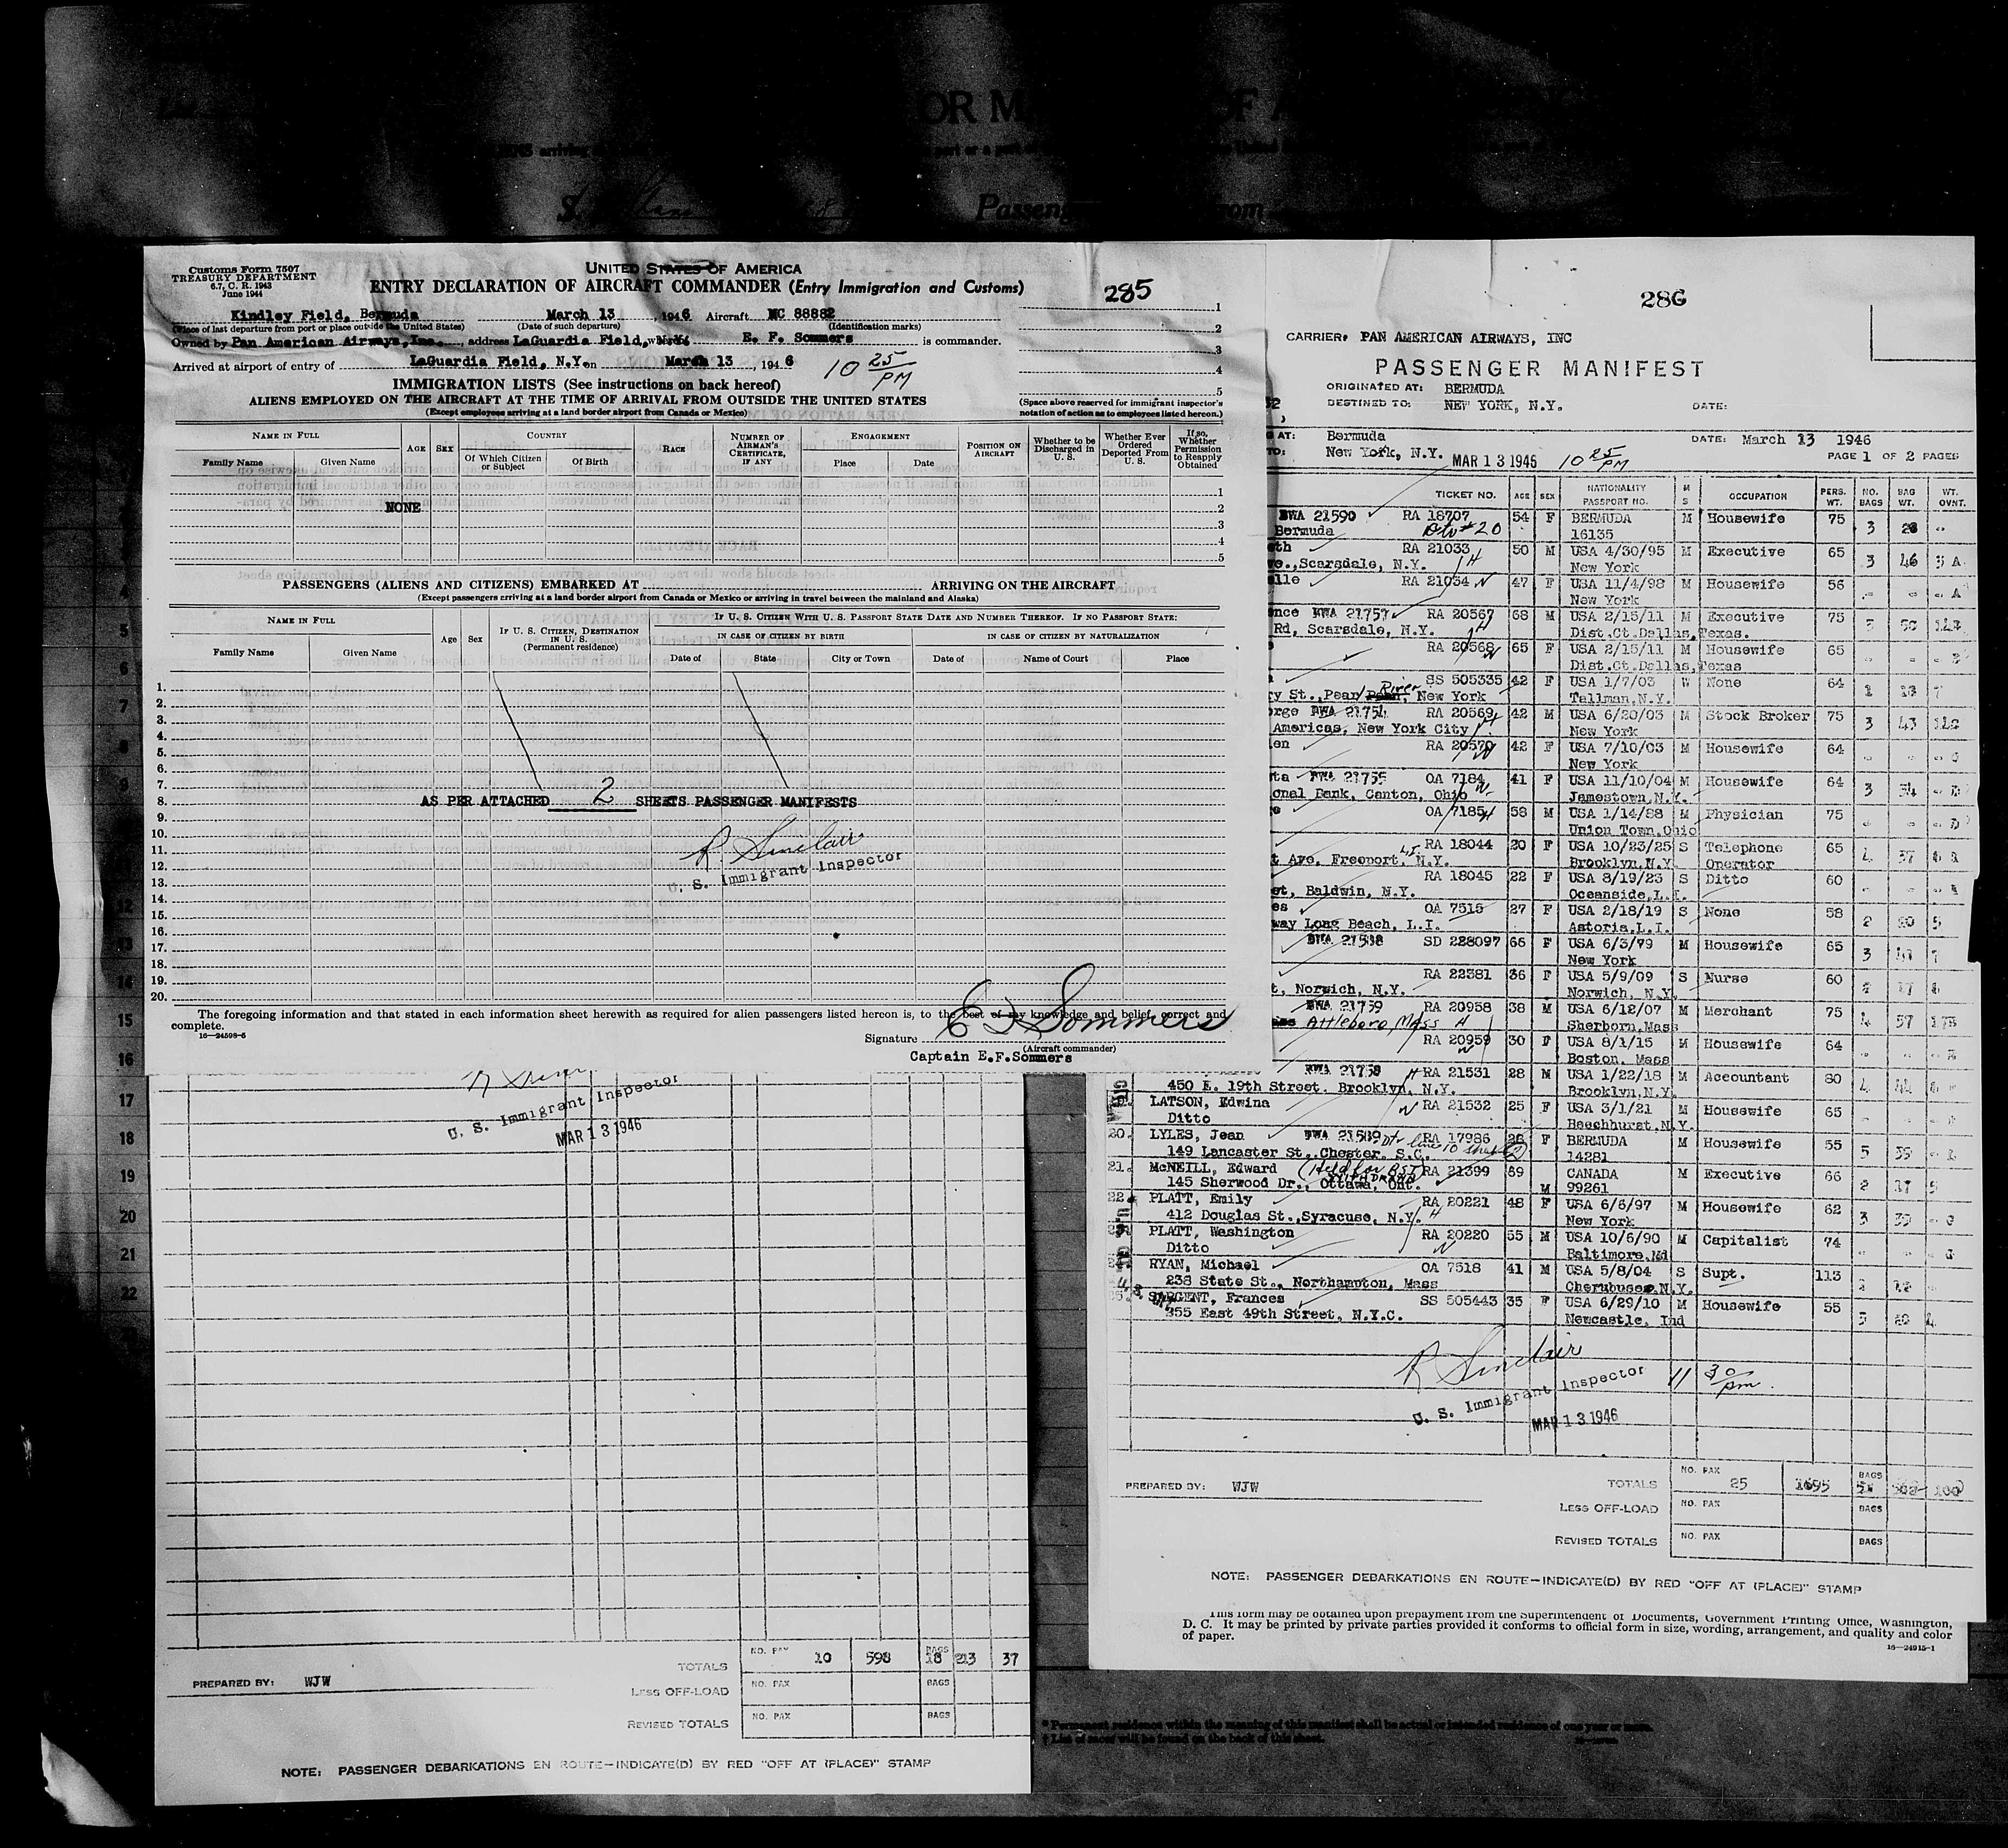 OR M OF A
Passeng om
Customs Form 7507
TREASURY DEPARTMENT
6.7, C. R. 1943
June 1944
UNITED STATES OF AMERICA
ENTRY DECLARATION OF AIRCRAFT COMMANDER (Entry Immigration and Customs)
285
Kindley Field, Bermuda March 13, 1946 Aircraft NC 88882
(Place of last departure from port or place outside the United States) (Date of such departure) (Identification marks)
Owned by Pan American Airways, Inc., address LaGuardia Field, N.Y. E. F. Sommers is commander.
Arrived at airport of entry of LaGuardia Field, N.Y. on March 13, 1946 10 25 PM
1
2
3
4
5
(Space above reserved for immigrant inspector's
notation of action as to employees listed hereon.)
IMMIGRATION LISTS (See instructions on back hereof)
ALIENS EMPLOYED ON THE AIRCRAFT AT THE TIME OF ARRIVAL FROM OUTSIDE THE UNITED STATES
(Except employees arriving at a land border airport from Canada or Mexico)
NAME IN FULL AGE SEX COUNTRY RACE NUMBER OF AIRMAN'S CERTIFICATE, IF ANY ENGAGEMENT POSITION ON AIRCRAFT Whether to be Discharged in U. S. Whether Ever Ordered Deported From U. S. If so, Whether Permission to Reapply Obtained
Family Name Given Name Of Which Citizen or Subject Of Birth Place Date
1
NONE 2
3
4
5
PASSENGERS (ALIENS AND CITIZENS) EMBARKED AT ARRIVING ON THE AIRCRAFT
(Except passengers arriving at a land border airport from Canada or Mexico or arriving in travel between the mainland and Alaska)
NAME IN FULL Age Sex IF U. S. CITIZEN, DESTINATION IN U. S. (Permanent residence) IF U. S. CITIZEN WITH U. S. PASSPORT STATE DATE AND NUMBER THEREOF. IF NO PASSPORT STATE:
IN CASE OF CITIZEN BY BIRTH IN CASE OF CITIZEN BY NATURALIZATION
Family Name Given Name Date of State City or Town Date of Name of Court Place
1.
2.
3.
4.
5.
6.
7.
8. AS PER ATTACHED 2 SHEETS PASSENGER MANIFESTS
9.
10.
11. R. Sinclair
12. U. S. Immigrant Inspector
13.
14.
15.
16.
17.
18.
19.
20.
The foregoing information and that stated in each information sheet herewith as required for alien passengers listed hereon is, to the best of my knowledge and belief, correct and
complete.
16—24598-6
Signature E F Sommers
(Aircraft commander)
Captain E.F.Sommers
U. S. Immigrant Inspector
MAR 13 1946
TOTALS NO. PAX 10 598 BAGS 18 213 37
PREPARED BY: WJW
LESS OFF-LOAD NO. PAX BAGS
REVISED TOTALS NO. PAX BAGS
NOTE: PASSENGER DEBARKATIONS EN ROUTE—INDICATE(D) BY RED "OFF AT (PLACE)" STAMP
286
CARRIER, PAN AMERICAN AIRWAYS, INC
PASSENGER MANIFEST
ORIGINATED AT: BERMUDA
DESTINED TO: NEW YORK, N.Y. DATE:
AT: Bermuda DATE: March 13 1946
TO: New York, N.Y. MAR 13 1946 10 25 PM PAGE 1 OF 2 PAGES
TICKET NO. AGE SEX NATIONALITY PASSPORT NO. M S OCCUPATION PERS. WT. NO. BAGS BAG WT. WT. OVNT.
BWA 21590 RA 18707 54 F BERMUDA M Housewife 75 3
Bermuda 16135
eth RA 21033 50 M USA 4/30/95 M Executive 65 3 46
, Scarsdale, N.Y. New York
elle RA 21034 47 F USA 11/4/98 M Housewife 56
New York
ence BWA 21757 RA 20567 68 M USA 2/15/11 M Executive 75
Rd, Scarsdale, N.Y. Dist.Ct.Dallas,Texas.
RA 20568 65 F USA 2/15/11 M Housewife 65
Dist.Ct.Dallas,Texas
SS 505335 42 F USA 1/7/03 W None 64
ry St.,Pearl River New York Tallman,N.Y.
orge BWA 21754 RA 20569 42 M USA 6/20/03 M Stock Broker 75 3 43
Americas, New York City New York
en RA 20570 42 F USA 7/10/03 M Housewife 64
New York
ta BWA 21755 OA 7184 41 F USA 11/10/04 M Housewife 64 3 54
onal Bank, Canton, Ohio Jamestown,N.Y.
OA 7185 58 M USA 1/14/88 M Physician 75
Union Town,Ohio
RA 18044 20 F USA 10/23/25 S Telephone 65
t Ave. Freeport, L.I. N.Y. Brooklyn,N.Y. Operator
RA 18045 22 F USA 8/19/23 S Ditto 60
et, Baldwin, N.Y. Oceanside,L.I.
es OA 7515 27 F USA 2/18/19 S None 58
way Long Beach, L.I. Astoria,L.I.
BWA 21598 SD 228097 66 F USA 6/3/79 M Housewife 65 3
New York
RA 22381 36 F USA 5/9/09 S Nurse 60
t, Norwich, N.Y. Norwich, N.Y.
BWA 21759 RA 20958 38 M USA 6/12/07 M Merchant 75 4 57
Attleboro, Mass Sherborn,Mass
RA 20959 30 F USA 8/1/15 M Housewife 64
Boston, Mass
BWA 21758 RA 21531 28 M USA 1/22/18 M Accountant 80 4 44
450 E. 19th Street. Brooklyn, N.Y. Brooklyn,N.Y.
LATSON, Edwina RA 21532 25 F USA 3/1/21 M Housewife 65
Ditto Beechhurst,N.Y.
20. LYLES, Jean BWA 21589 RA 17986 F BERMUDA M Housewife 55
149 Lancaster St.,Chester, S.C. 14281
21. McNEILL, Edward (Held for BSI) RA 21399 69 M CANADA M Executive 66 2
145 Sherwood Dr., Ottawa, Ont. 99261
22. PLATT, Emily RA 20221 48 F USA 6/6/97 M Housewife 62 3
412 Douglas St.,Syracuse, N.Y. New York
PLATT, Washington RA 20220 55 M USA 10/6/90 M Capitalist 74
Ditto Baltimore,Md
RYAN, Michael OA 7518 41 M USA 5/8/04 S Supt. 113
238 State St., Northampton, Mass
SARGENT, Frances SS 505443 35 F USA 6/29/10 M Housewife 55
355 East 49th Street, N.Y.C. Newcastle, Ind
R Sinclair
U. S. Immigrant Inspector 11 30 pm.
MAR 13 1946
PREPARED BY: WJW TOTALS NO. PAX 25 1695 BAGS
LESS OFF-LOAD NO. PAX BAGS
REVISED TOTALS NO. PAX BAGS
NOTE: PASSENGER DEBARKATIONS EN ROUTE—INDICATE(D) BY RED "OFF AT (PLACE)" STAMP
This form may be obtained upon prepayment from the Superintendent of Documents, Government Printing Office, Washington,
D. C. It may be printed by private parties provided it conforms to official form in size, wording, arrangement, and quality and color
of paper.
16—24915-1
* Permanent residence within the meaning of this manifest shall be actual or intended residence of one year or more.
† List of races will be found on the back of this sheet.
12
13
14
15
16
17
18
19
20
21
22